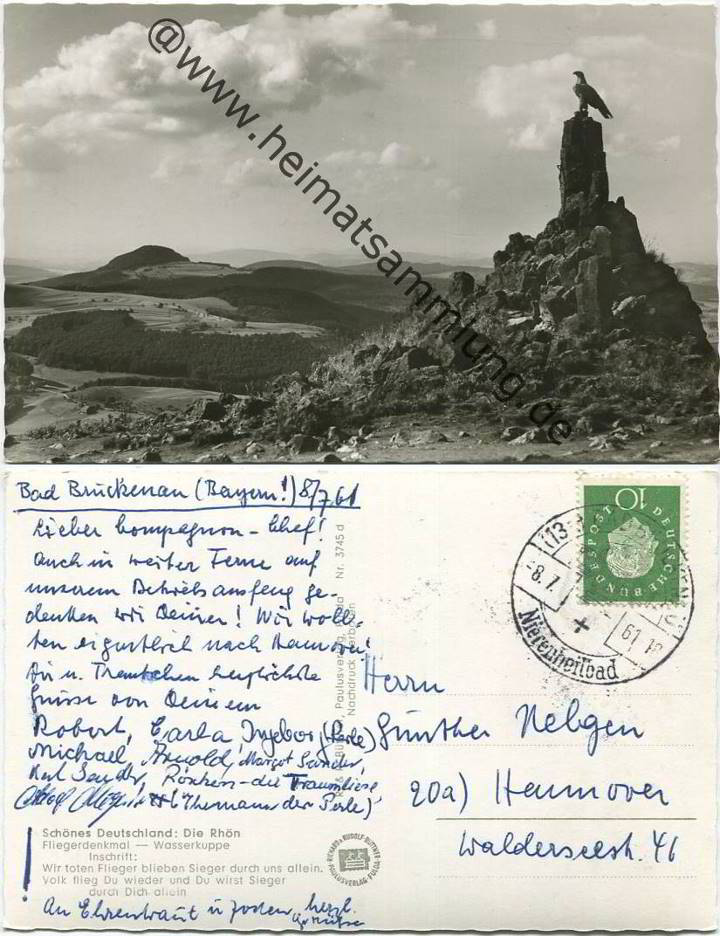 @www.heimatsammlung.de
Bad Brückenau (Bayern!) 8/7 61
Lieber Compagnon-Chef!
Auch in weiter Ferne auf
unserem Betriebsausflug ge-
denken wir Deiner! Wir woll-
ten eigentlich nach Hannover!
Dir u. Trautchen herzlichste
Grüsse von Deinem
Robert, Carla, Ingeborg (Perle)
Michael, Arnold, Margot Sander,
Kurt Sander, Röschen - die Traumliese
(Ehemann der Perle)
Schönes Deutschland: Die Rhön
Fliegerdenkmal — Wasserkuppe
Inschrift:
Wir toten Flieger blieben Sieger durch uns allein.
Volk flieg Du wieder und Du wirst Sieger
durch Dich allein
An Ehrentraut u. herzl.
Grüße
Paulusverlag, Fulda Nr. 3745 d
Nachdruck verboten
RICHARD & RUDOLF BÜTTNER
PAULUSVERLAG FULDA
10
DEUTSCHE BUNDESPOST
(13
-8.7. 61.18
Nierenheilbad
Herrn
Günther Nebgen
20a) Hannover
Walderseestr. 46